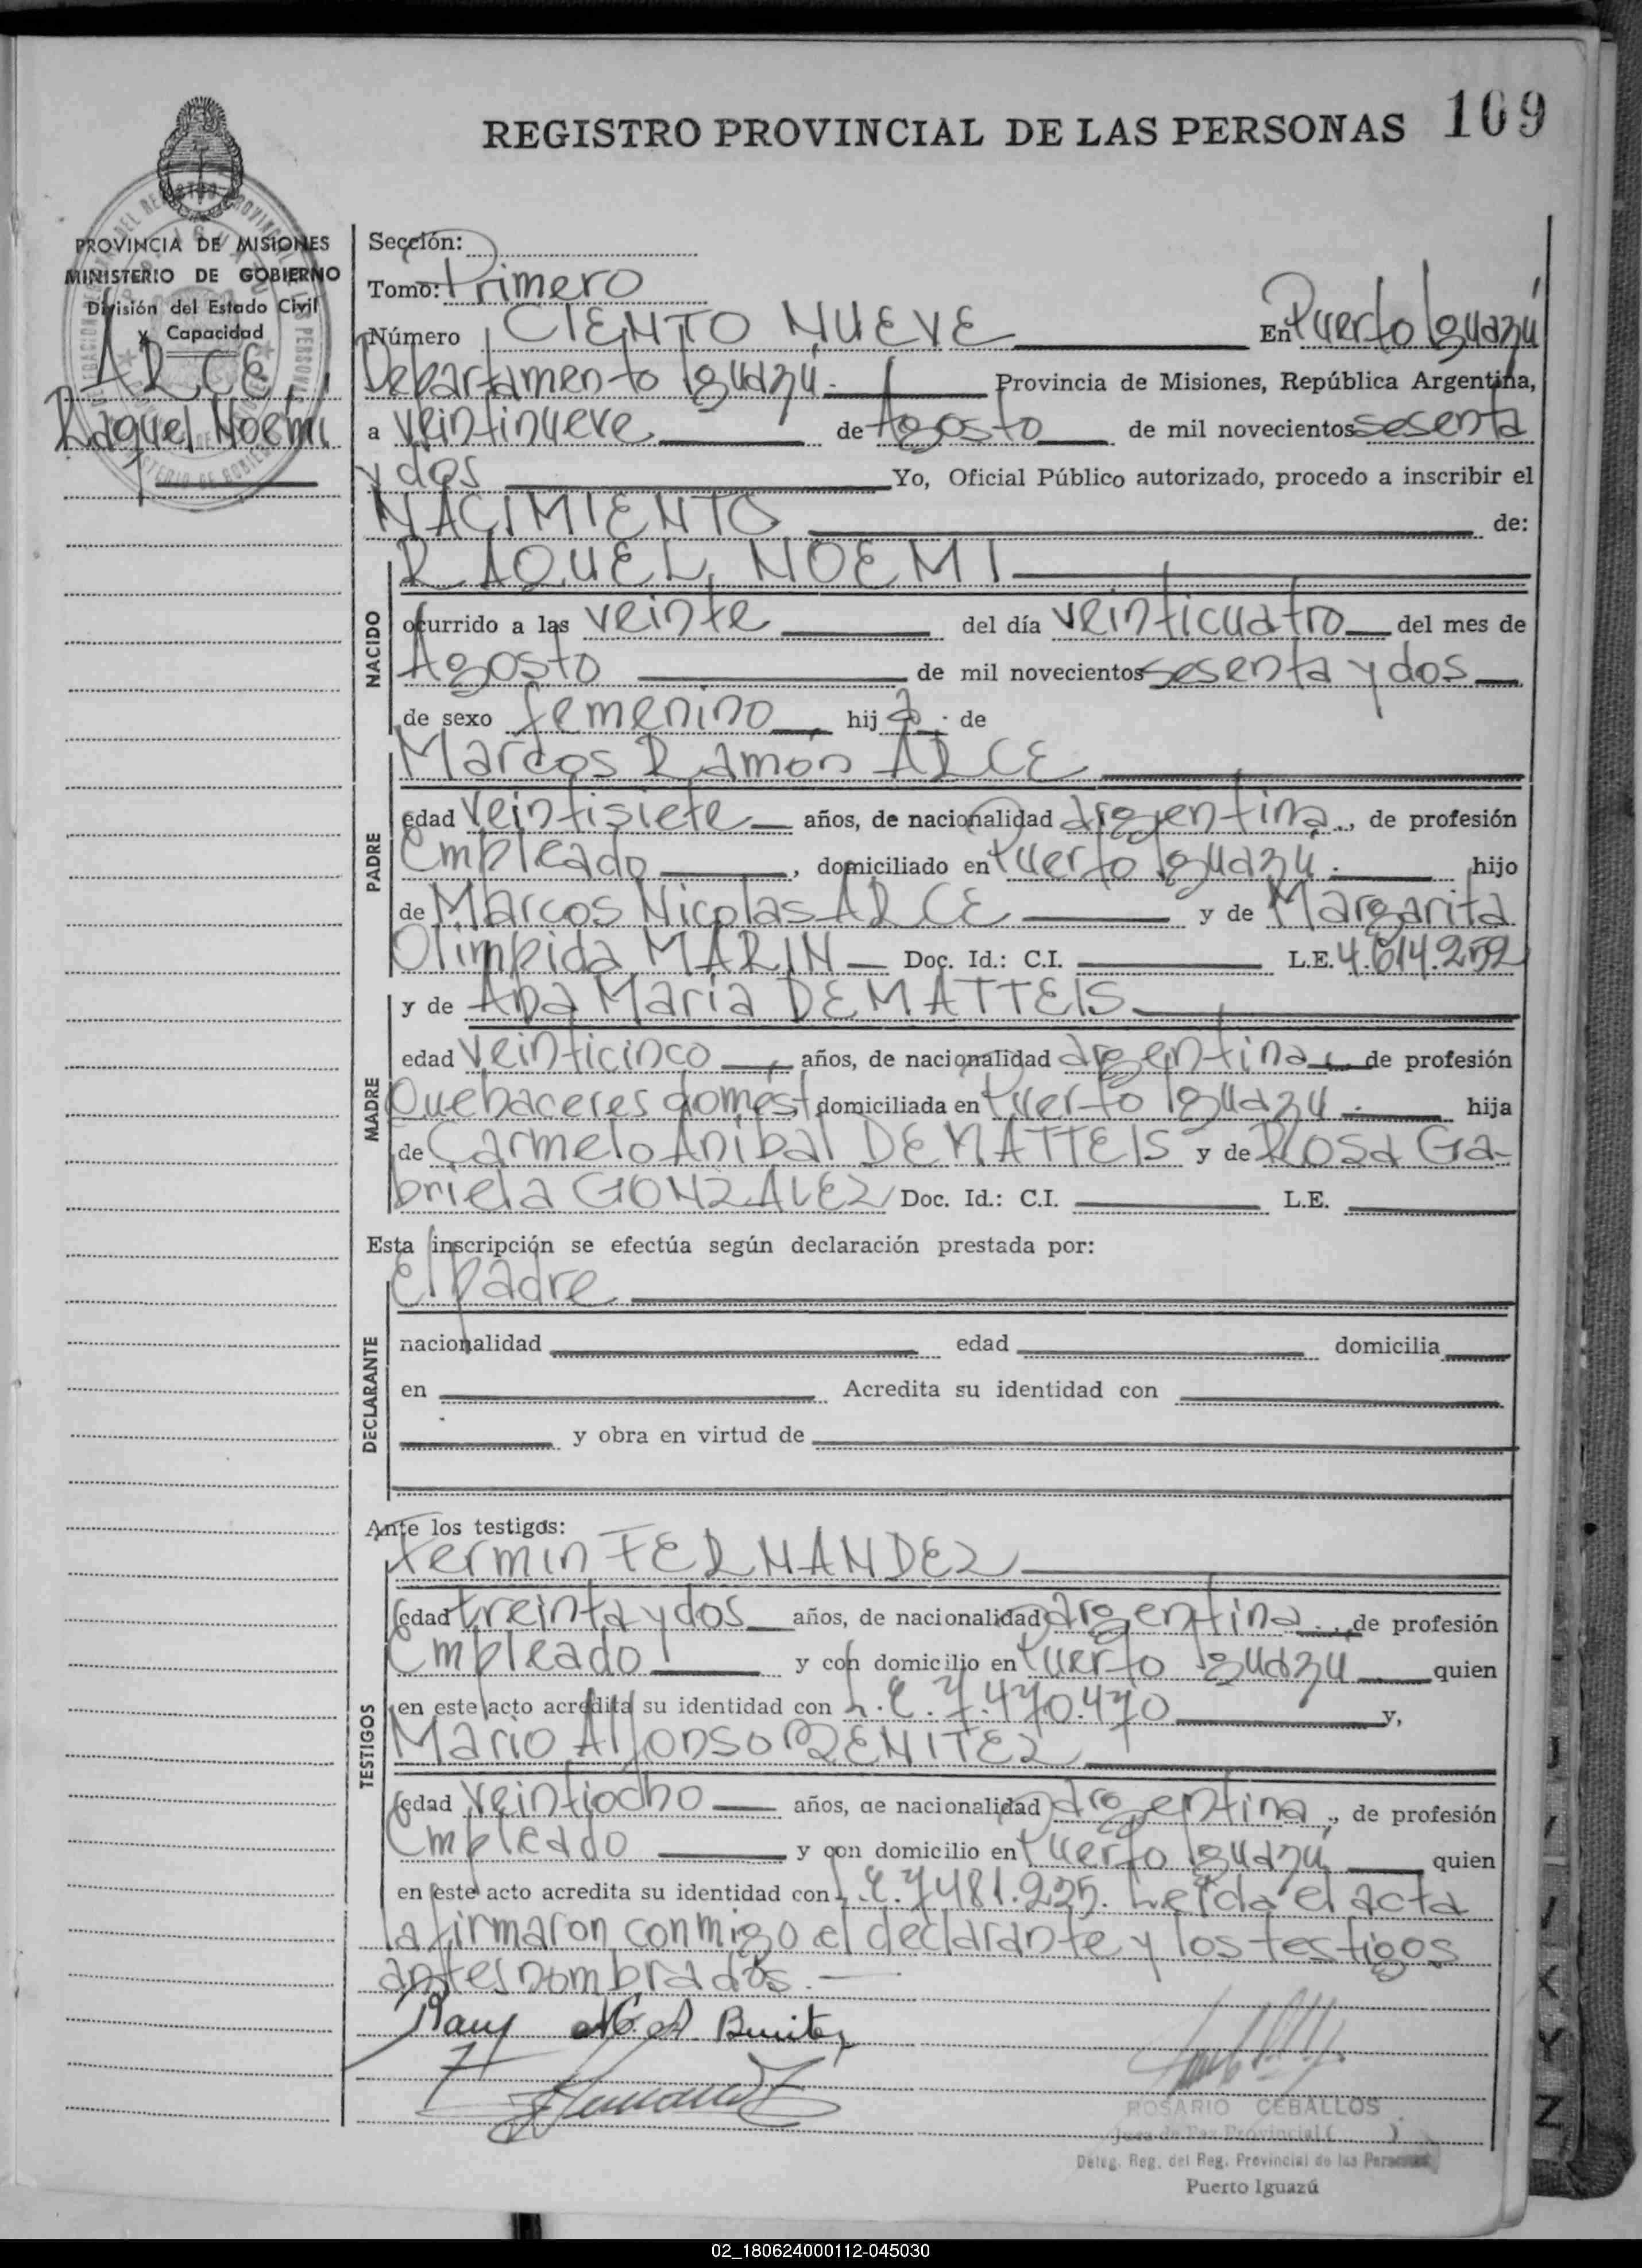 REGISTRO PROVINCIAL DE LAS PERSONAS 109
PROVINCIA DE MISIONES
MINISTERIO DE GOBIERNO
División del Estado Civil
y Capacidad
ARCE
Raquel Noemi
Sección:
Tomo: Primero
Número CIENTO NUEVE En Puerto Iguazú
Departamento Iguazú.- Provincia de Misiones, República Argentina,
a veintinueve de Agosto de mil novecientos sesenta
y dos Yo, Oficial Público autorizado, procedo a inscribir el
NACIMIENTO de:
RAQUEL NOEMI
NACIDO
ocurrido a las veinte del día veinticuatro del mes de
Agosto de mil novecientos sesenta y dos
de sexo femenino hija de
PADRE
Marcos Ramón ARCE
edad veintisiete años, de nacionalidad argentina, de profesión
Empleado, domiciliado en Puerto Iguazú. hijo
de Marcos Nicolas ARCE y de Margarita
Olimpida MARIN Doc. Id.: C.I. L.E. 4.614.252
MADRE
y de Ana Maria DEMATTEIS
edad veinticinco, años, de nacionalidad argentina, de profesión
Quehaceres domést. domiciliada en Puerto Iguazú.- hija
de Carmelo Anibal DEMATTEIS y de Rosa Ga-
briela GONZALEZ Doc. Id.: C.I. L.E.
Esta inscripción se efectúa según declaración prestada por:
DECLARANTE
El padre
nacionalidad edad domicilia
en Acredita su identidad con
y obra en virtud de
Ante los testigos:
TESTIGOS
Fermin FERNANDEZ
edad treinta y dos años, de nacionalidad argentina, de profesión
Empleado y con domicilio en Puerto Iguazú quien
en este acto acredita su identidad con L.E. 7.470.470 y,
Mario Alfonso BENITEZ
edad veintiocho años, de nacionalidad argentina, de profesión
Empleado y con domicilio en Puerto Iguazú, quien
en este acto acredita su identidad con L.E. 7481.225. Leída el acta
la firmaron conmigo el declarante y los testigos
antes nombrados.-
Benitez
ROSARIO CEBALLOS
Juez de Paz Provincial ( )
Deleg. Reg. del Reg. Provincial de las Personas
Puerto Iguazú
02_180624000112-045030